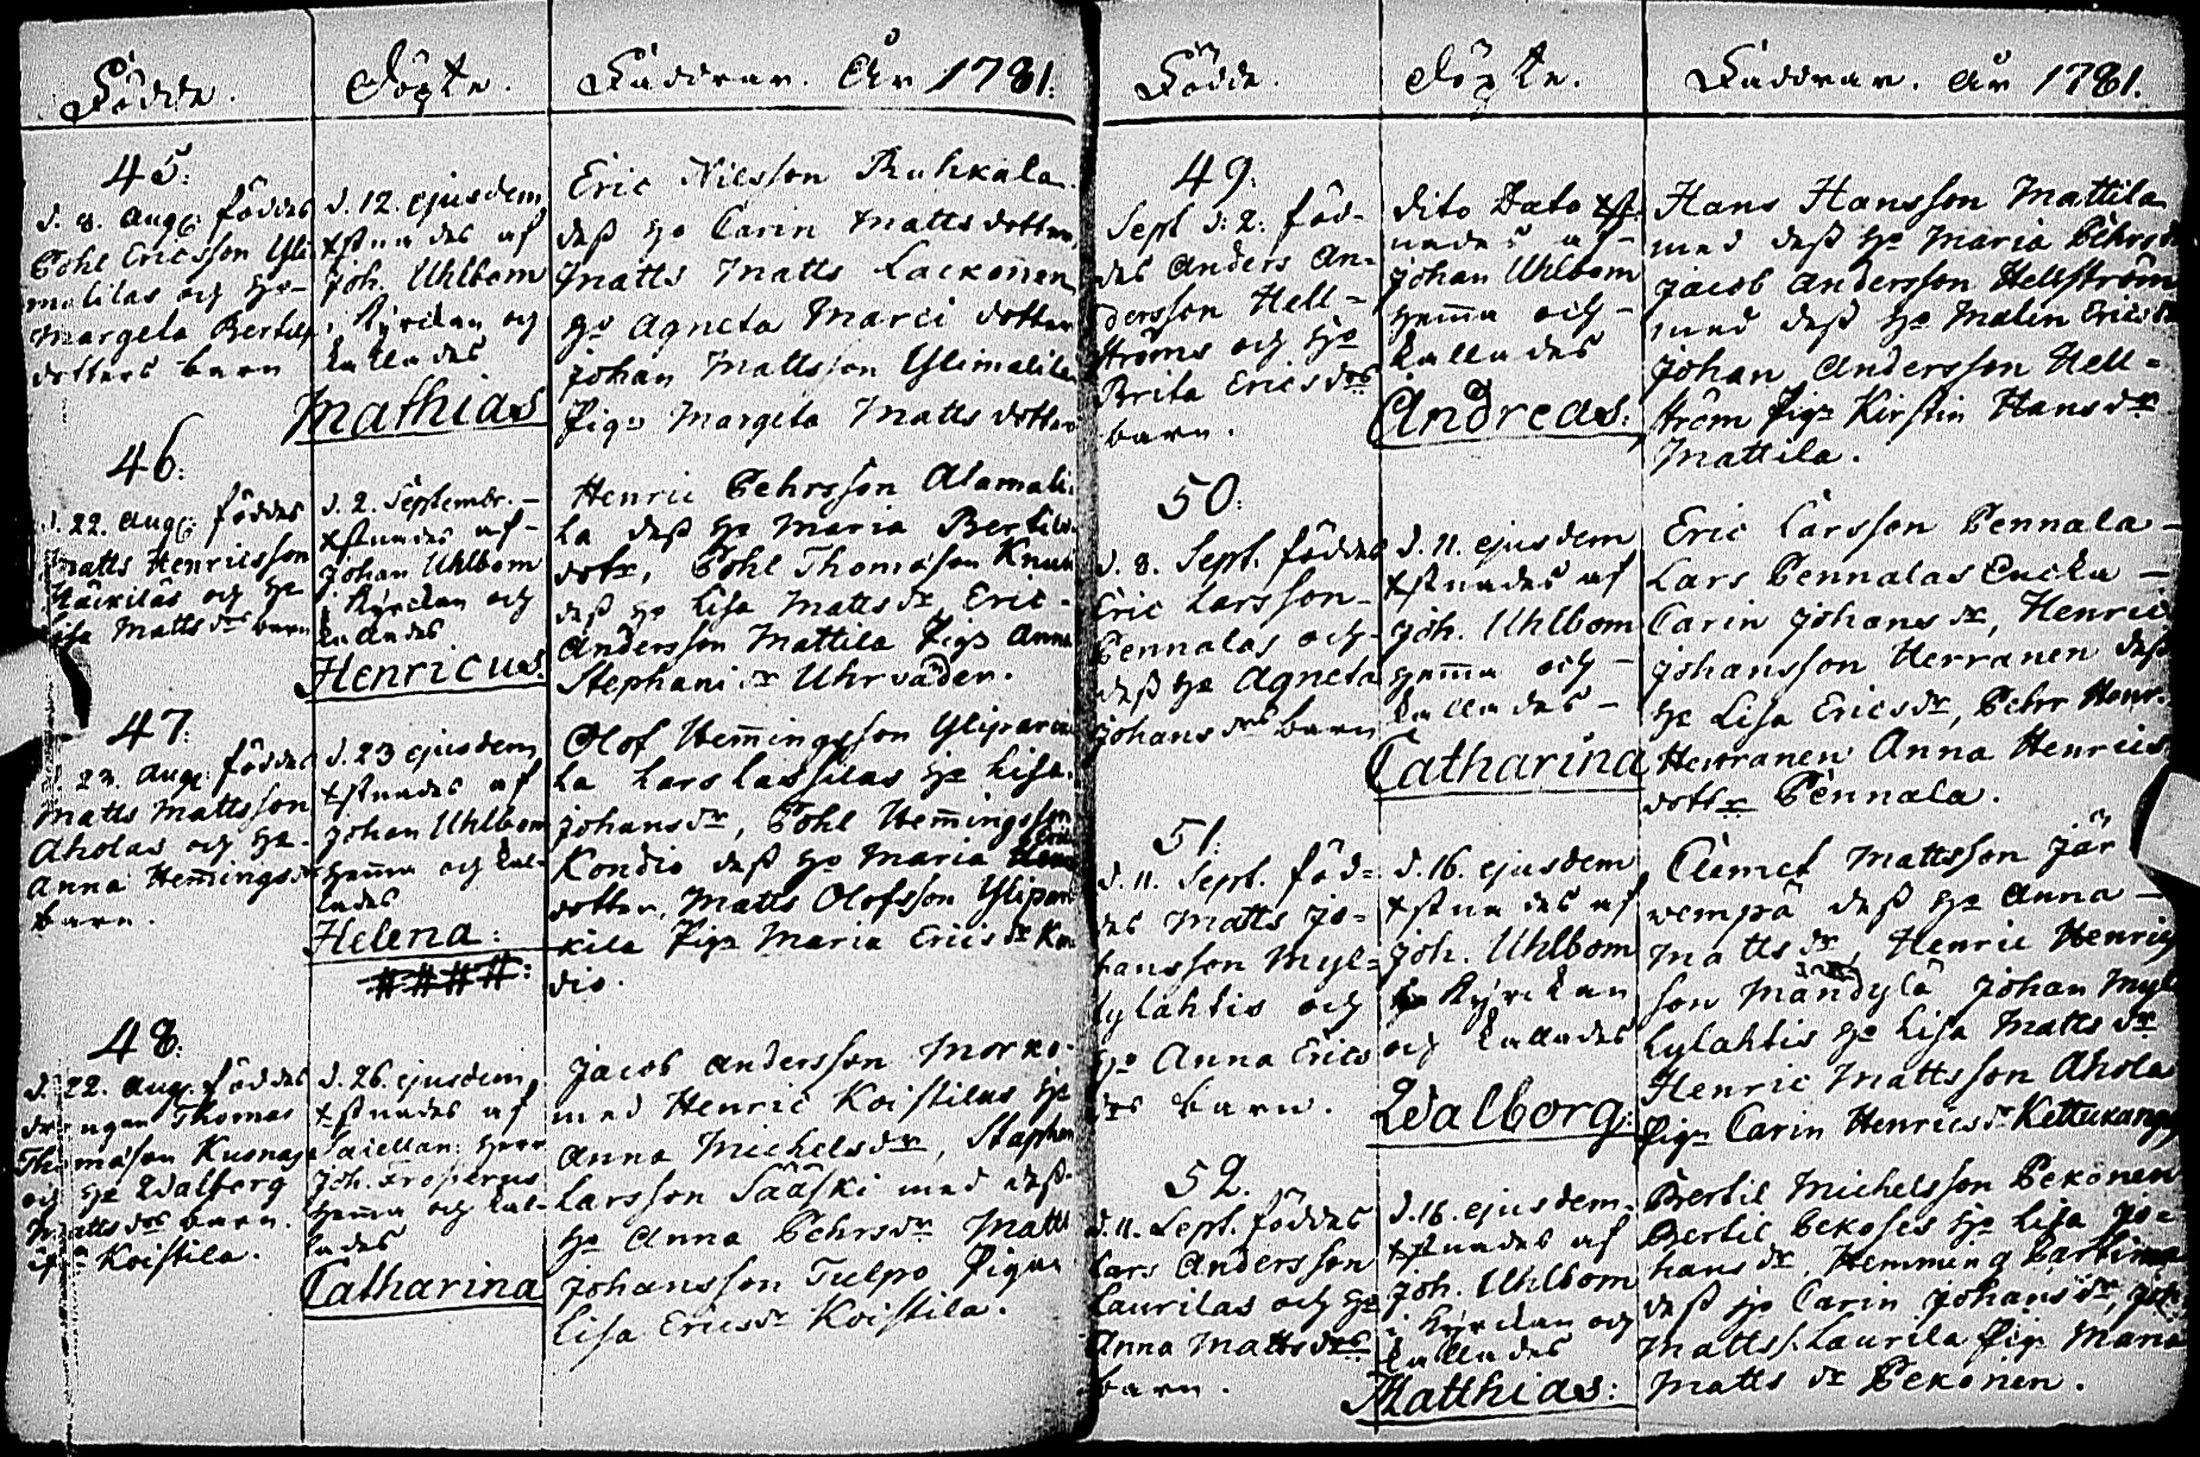 Födde.
Döpte.
Faddrar. År 1781.
45.
d. 8. Aug: föddes
Pohl Ericsson Yli
malilas och H:o
Margeta Bertils
dotters barn
d. 12. ejusdem
xstnades af
Joh. Uhlbom
i Kyrckan och
kallades
Mathias
Eric Nilsson Ruhkala.
dess H:o Carin Matts dotter,
Matts Matts Lackonen
H:o Agneta Marci dotter
Johan Mattsson Ylimalila
Pig: Margeta Matts dotter
46.
d. 22. Aug: föddes
Matts Henricsson
Häickiläs och H:o
Lisa Matts drs barn
d. 2. Septembr. -
xstnades af -
Johan Uhlbom
i Kyrckan och
kallades
Henricus.
Henric Pehrsson Alamali
la dess H:o Maria Bertils
dotr, Pohl Thomason Knuu
dess H:o Lisa Matts dr, Eric -
Andersson Mattila Pig: Anna
Stephani dr Uhrvåden.
47.
d. 23. Aug: föddes
Matts Mattsson
Aholas och H:o
Anna Hemmings dr
barn.
d. 23 ejusdem
xstnades af
Johan Uhlbom
hemma och kal-
lades
Helena:
Olof Hemmingsson
la Lars Lassilas H:o Lisa
Johans dr, Pohl Hemmingsson
Kondio dess H:o Maria
dotter, Matts Olofsson
kila Pig: Maria Erics dr Kon
dio.
48.
d. 22. Aug: föddes
drengen Thomas
Thomason Kuonas
och H:o Walborg
Matts drs barn.
Koistila.
d. 26. ejusdem
xstnades af
Sacellan: Herr
Joh. Frosterus
hemma och kal-
lades
Catharina
Jacob Andersson Morko
med Henric Koistilas H:o
Anna Michels dr, Staphan
Larsson Sääski med dess
H:o Anna Pehrs dr Matts
Johansson Tulpo Pigan
Lisa Erics dr Koistila.
Födde.
Döpte.
Faddrar. År 1781.
49.
Sept d: 2: föd-
des Anders An-
dersson Hell-
ströms och H:o
Brita Erics drs
barn.
Dito Dato xst-
nades af -
Johan Uhlbom
hemma och -
kallades
Andreas:
Hans Hansson Mattila
med dess H:o Maria Pehrs dr
Jacob Andersson Hellström
med dess H:o Malin Erics dr
Johan Andersson Hell-
ström Pig: Kirstin Hans dr
Mattila.
50.
d. 8. Sept. föddes
Eric Larsson -
Pennalas och -
dess H:o Agneta
Johans drs barn
d. 11. ejusdem
xstnades af
Joh. Uhlbom
hemma och -
kallades -
Catharina
Eric Larsson Pennala -
Lars Pennalas Encka -
Carin Johans dr, Henric
Johansson Herranen dess
H:o Lisa Erics dr, Pehr Henr.
Herranen Anna Henrics
dotr Pennala.
51.
d. 11. Sept. föd-
des Matts Jo-
hansson Myl-
lylahtis och
H:o Anna Erics
drs barn.
d. 16. ejusdem
xstnades af
Joh. Uhlbom
Kyrckan
och kallades
Walborg:
Clemet Mattsson Jär
vempä dess H:o Anna -
Matts dr, Henric Henrics
son Mändylä Johan Myl
lylahtis H:o Lisa Matts dr
Henric Mattsson Ahola
Pig: Carin Henrics dr Kettukangas
52.
d. 11. Sept. föddes
Lars Andersson
Laurilas och H:o
Anna Matts drs
barn.
d. 16. ejusdem.
xstnades af
Joh. Uhlbom
i Kyrckan och
kallades
Matthias:
Bertil Michelsson Pekonen
Bertil Pekoses H:o Lisa Jo-
hans dr, Hemming
dess H:o Carin Johans dr, Joh.
Mattss. Laurila Pig: Maria
Matts dr Pekonen.